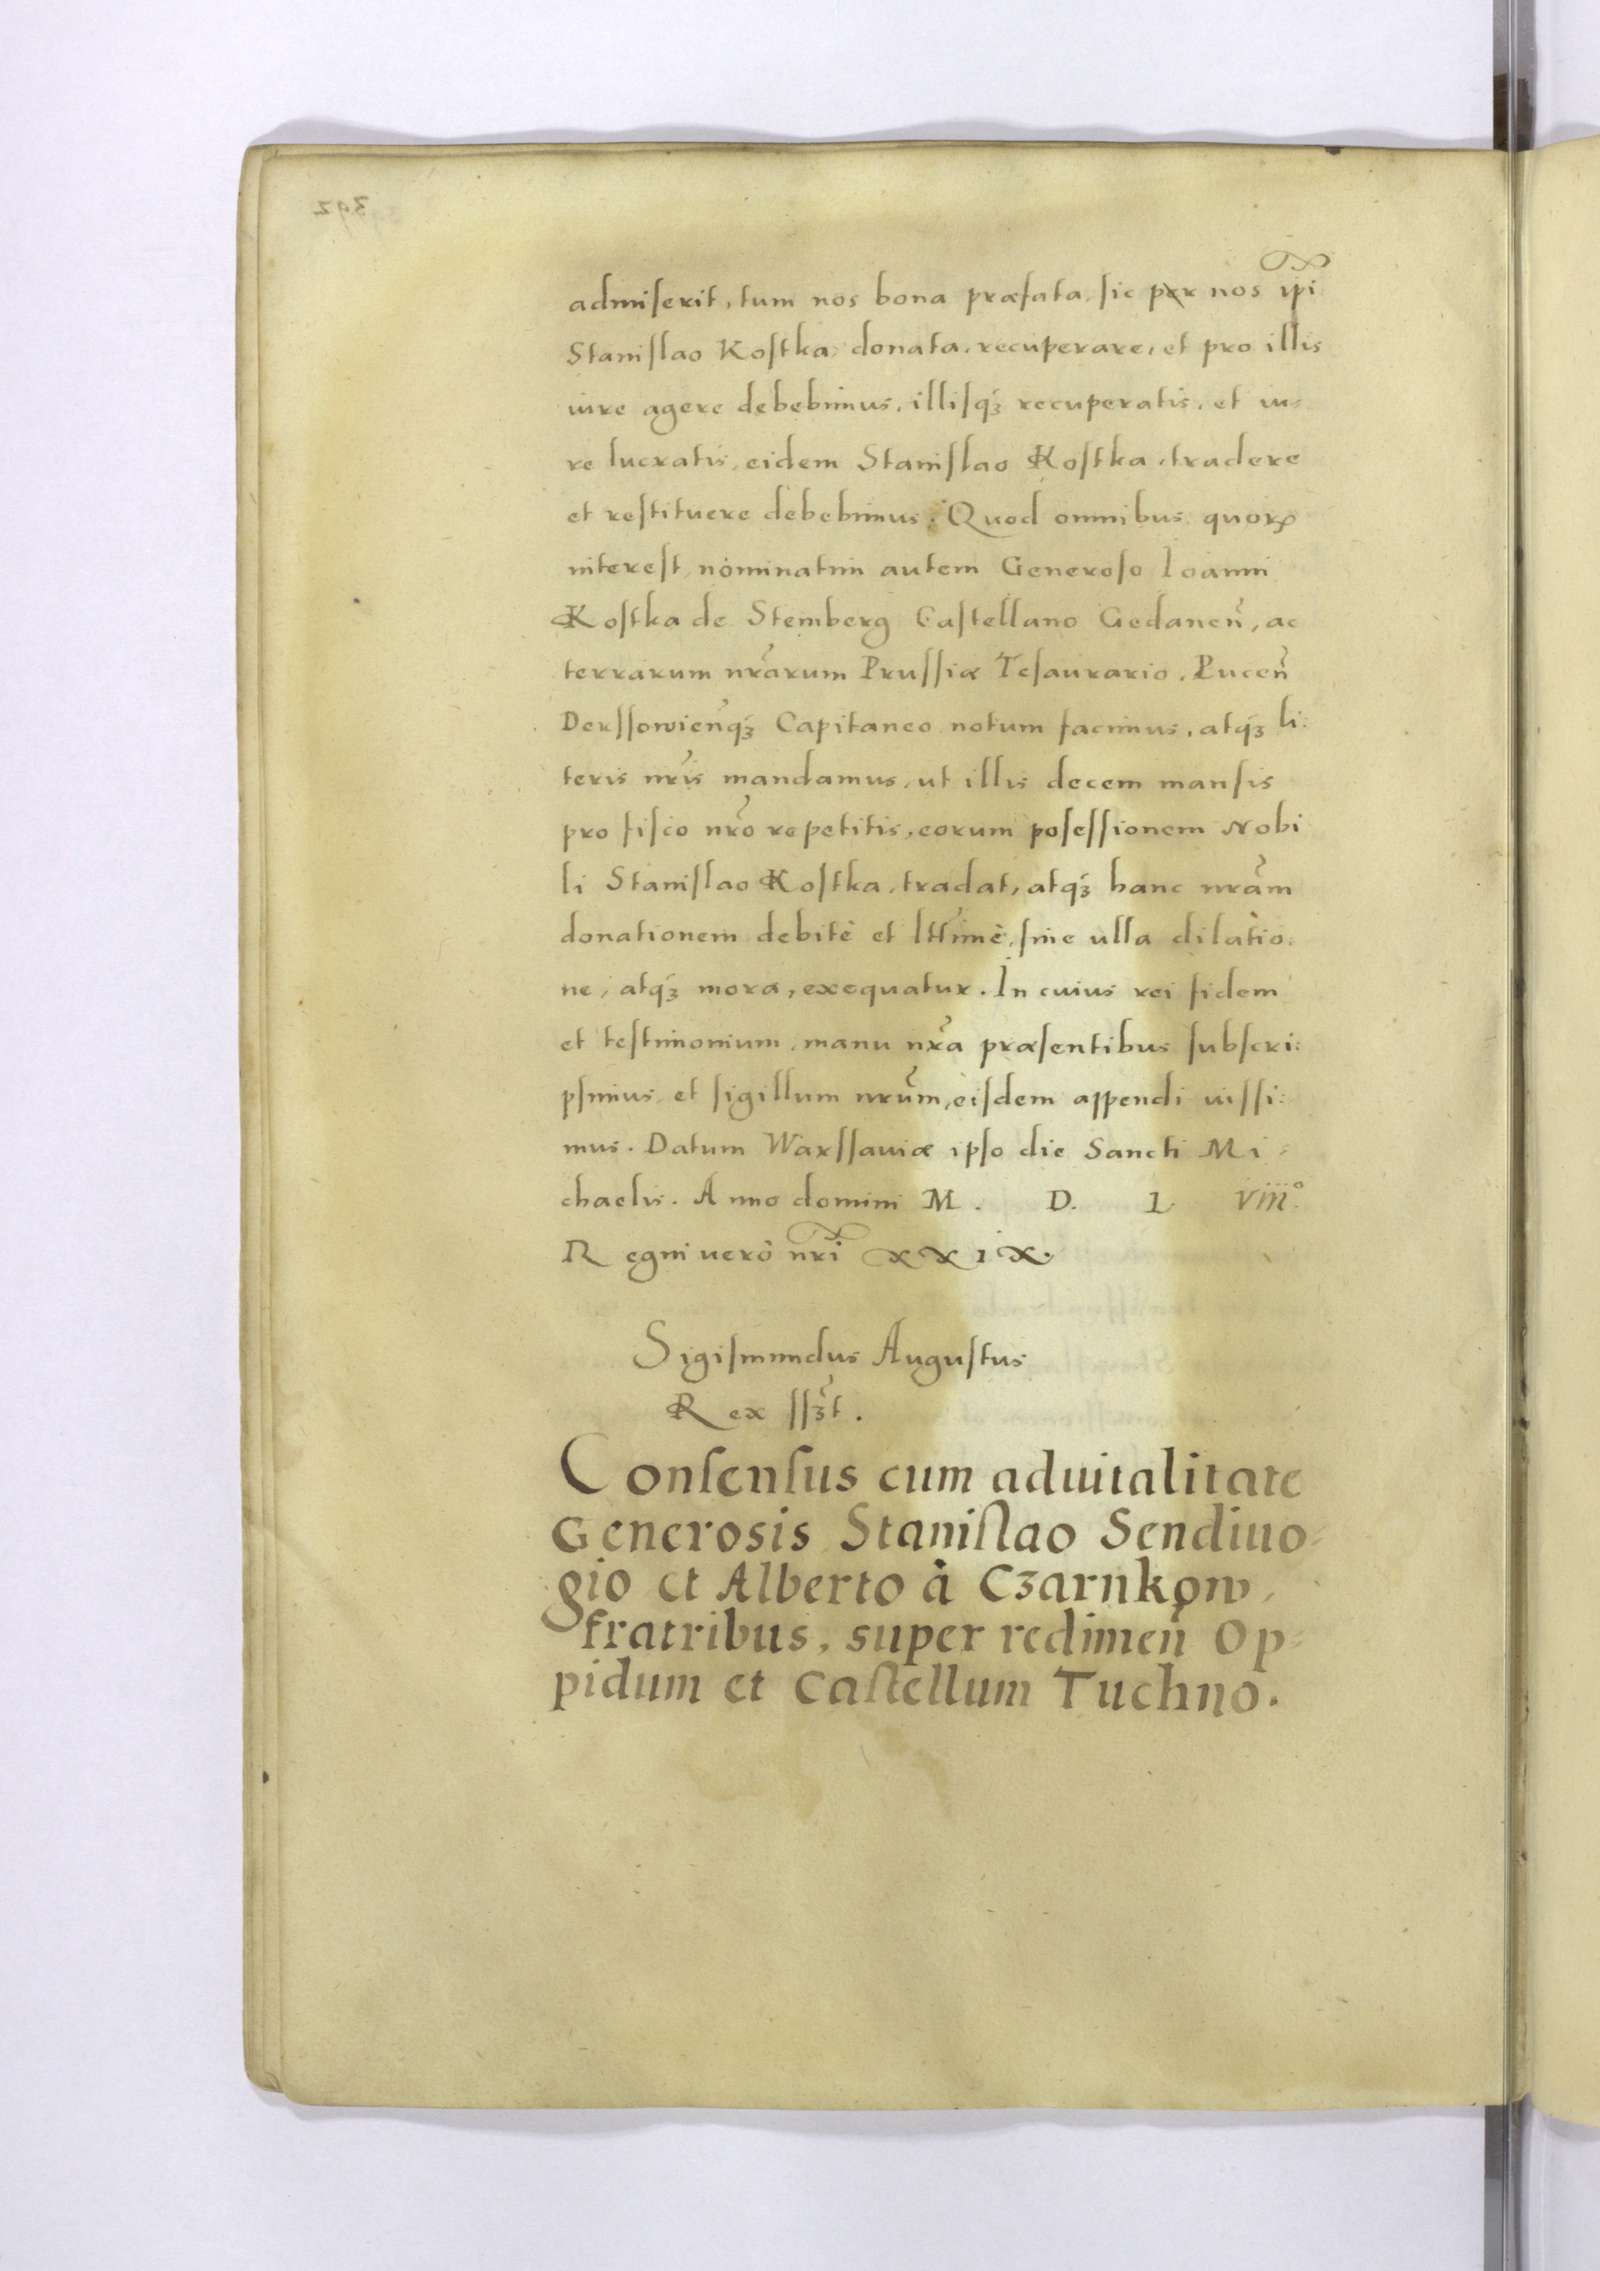 admiserit, tum nos bona præfata, sic per nos ip̃i
Stanislao Kostka, donata, recuperare, et pro illis
iure agere debebimus, illisq́ꝫ recuperatis, et iu-
re lucratis, eidem Stanislao Kostka, tradere
et restituere debebimus. Quod omnibus quorꝝ
interest, nominatim autem Generoso Ioanni
Kostka de Stemberg Castellano Gedaneñ, ac
terrarum nr̃arum Prussiæ Tesaurario, Puceñ
Derssowieñq́ꝫ Capitaneo notum facimus, atq́ꝫ li:
teris nr̃is mandamus, ut illis decem mansis
pro fisco nr̃o repetitis, eorum posessionem Nobi
li Stanislao Kostka, tradat, atq́ꝫ hanc nr̃am
donationem debitè et ltt̃imè, sine ulla dilatio:
ne, atq́ꝫ mora, exequatur. In cuius rei fidem
et testimonium, manu nr̃a præsentibus subscri:
psimus, et sigillum nr̃um, eisdem appendi iussi:
mus. Datum Warssauiæ ipso die Sancti Mi-
chaelis. Anno domini M. D. L viiiº.
Regni uerò nr̃i xxix.
Sigismundus Augustus
Rex ssꝫ̃t.
Consensus cum aduitalitate
Generosis Stanislao Sendiuo-
gio et Alberto à Czarnkow,
fratribus, super redimeñ Op-
pidum et Castellum Tuchno.